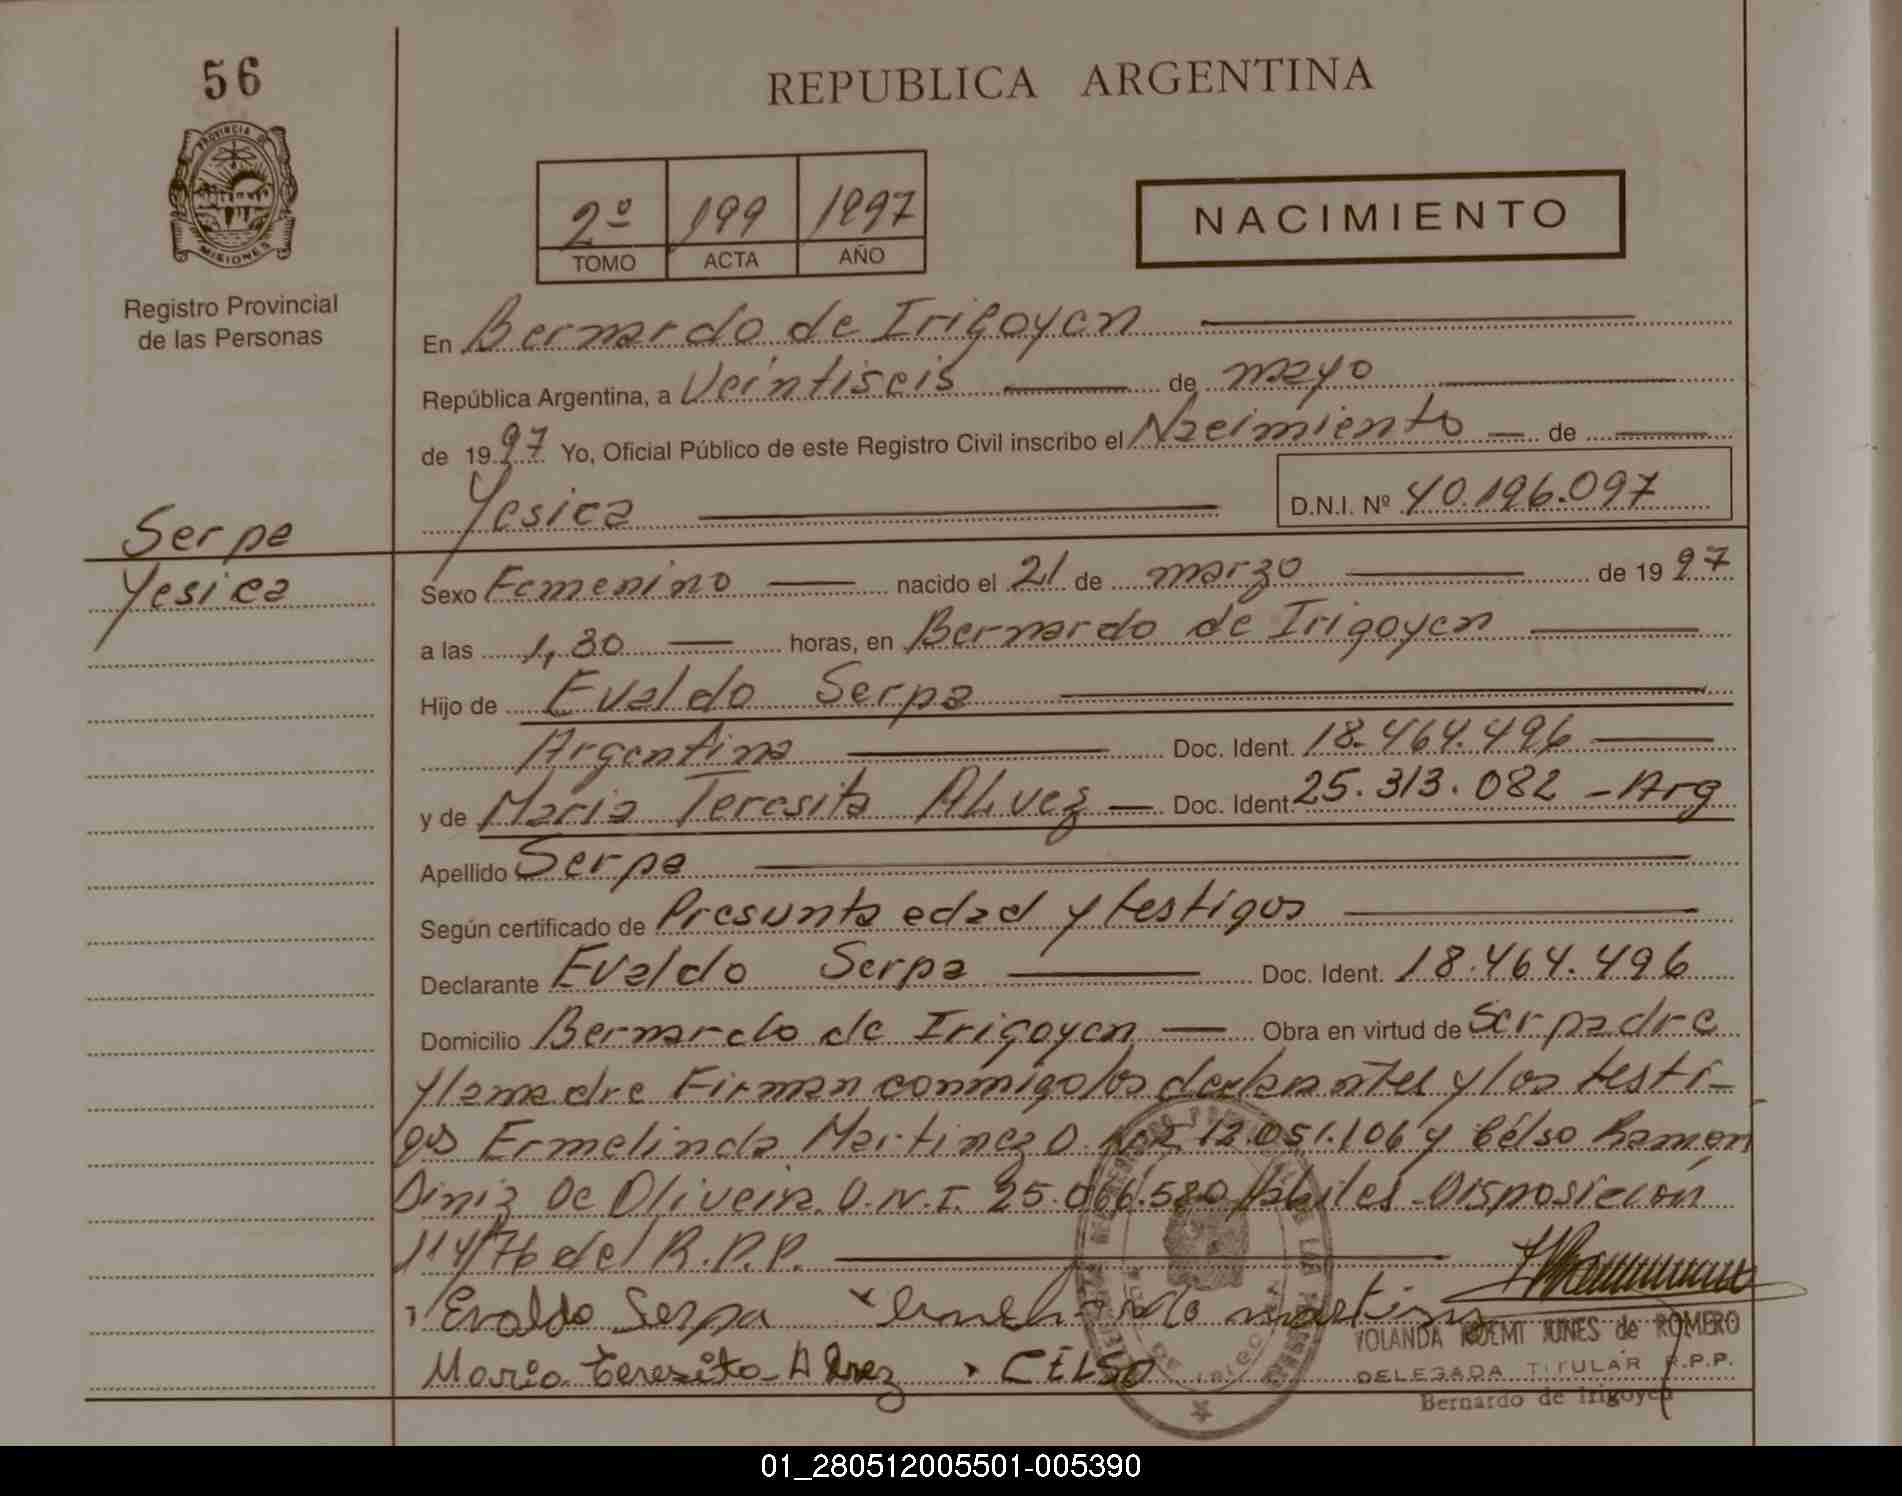 56
REPUBLICA ARGENTINA
PROVINCIA DE
MISIONES
Registro Provincial
de las Personas
2º 199 1997
TOMO ACTA AÑO
NACIMIENTO
En Bernardo de Irigoyen
República Argentina, a Veintiseis de mayo
de 1997 Yo, Oficial Público de este Registro Civil inscribo el Nacimiento de
Yesica D.N.I. Nº 40.196.097
Serpa
Yesica
Sexo Femenino nacido el 21 de marzo de 1997
a las 1,30 horas, en Bernardo de Irigoyen
Hijo de Evaldo Serpa
Argentina Doc. Ident. 18.464.496
y de Maria Teresita ALvez Doc. Ident 25.313.082 - Arg
Apellido Serpa
Según certificado de Presunta edad y testigos
Declarante Evaldo Serpa Doc. Ident. 18.464.496
Domicilio Bernardo de Irigoyen Obra en virtud de Ser padre
y la madre Firman conmigo los declarantes y los testi-
gos Ermelinda Martinez D. 12.051.106 y Celso Ramon
Diniz De Oliveira D.N.I. 25.066.580 habiles - Disposición
114/76 del R.P.P.
Evaldo Serpa
Maria Teresita Alvez CELSO
YOLANDA NOEMI JUNES de ROMERO
DELEGADA TITULAR R.P.P.
Bernardo de Irigoyen
01_280512005501-005390